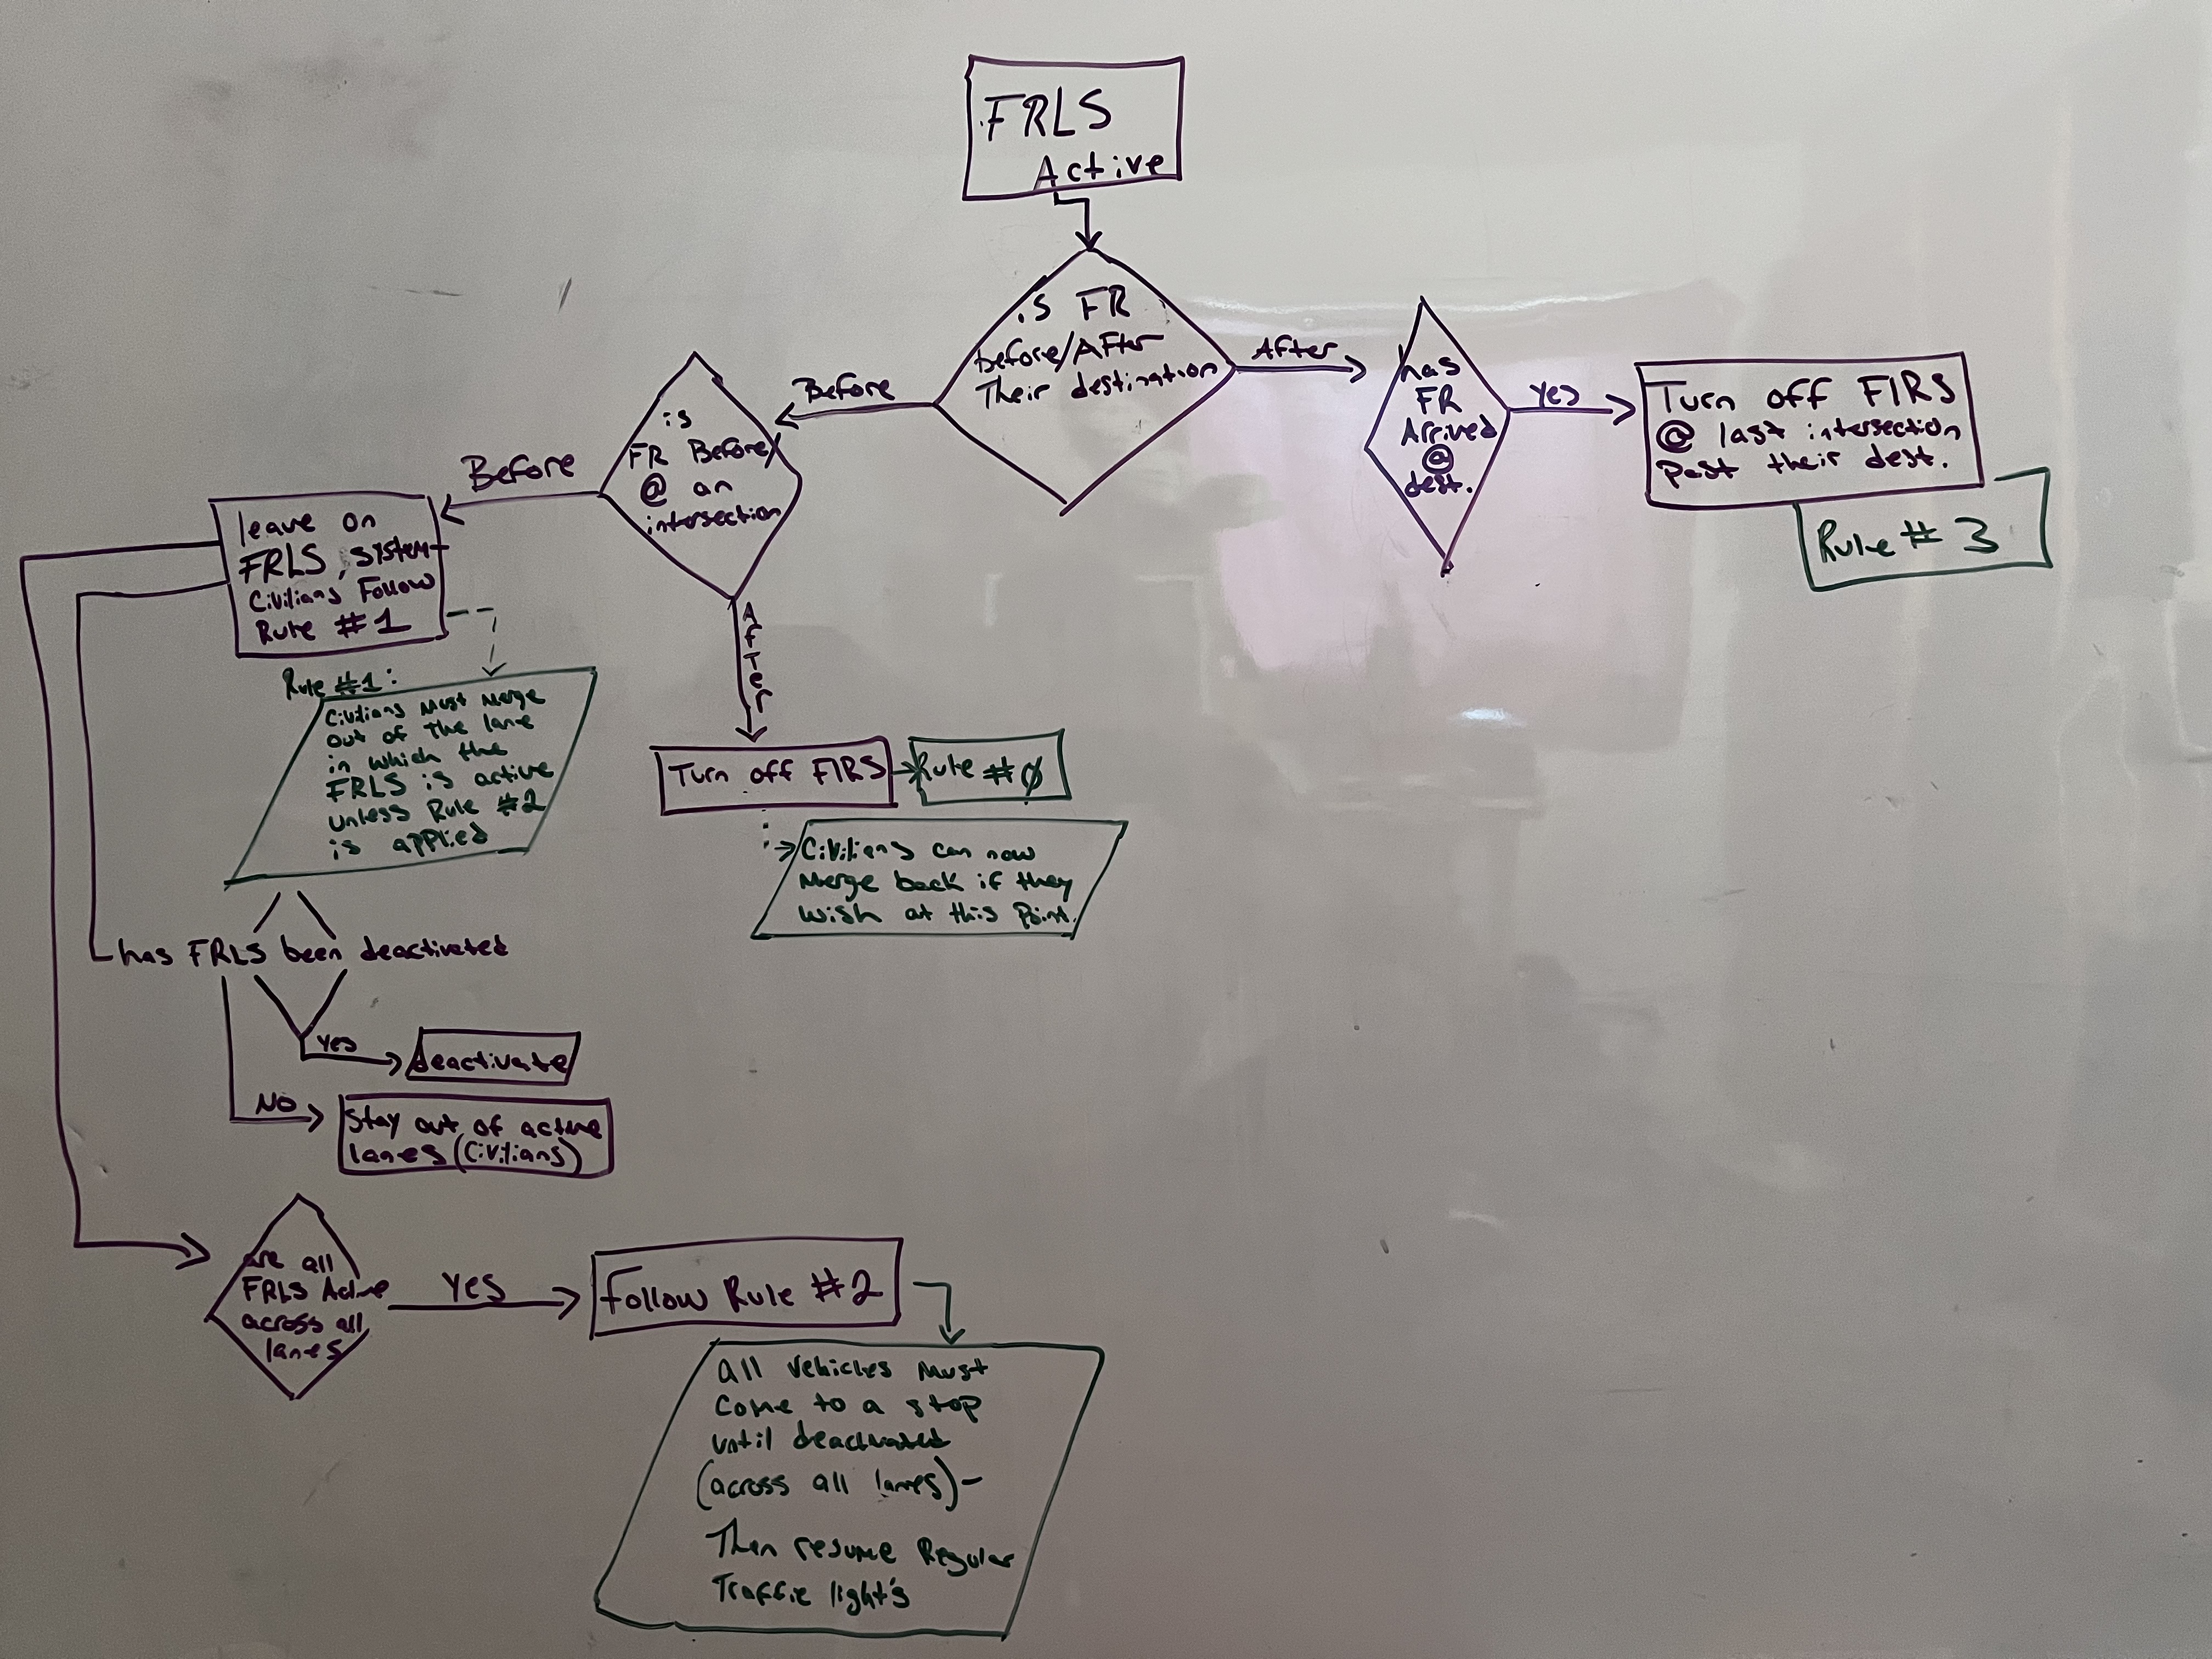 FRLS
Active
is FR
before/After
Their destination
After
has
FR
Arrived
@
dest.
Yes
Turn off FIRS
@ last intersection
Past their dest.
Rule # 3
Before
is
FR Before/
@ an
intersection
Before
leave on
FRLS, system-
Civilians Follow
Rule #1
Rule #1:
Civilians Must Merge
out of The lane
in which the
FRLS is active
unless Rule #2
is applied
After
Turn off FIRS
Rule #0
Civilians can now
Merge back if they
wish at this Point.
has FRLS been deactivated
Yes
deactivate
NO
Stay out of active
lanes (Civilians)
are all
FRLS Active
across all
lanes
Yes
Follow Rule #2
all vehicles Must
Come to a stop
until deactivated
(across all lanes)-
Then resume Regular
Traffic light's